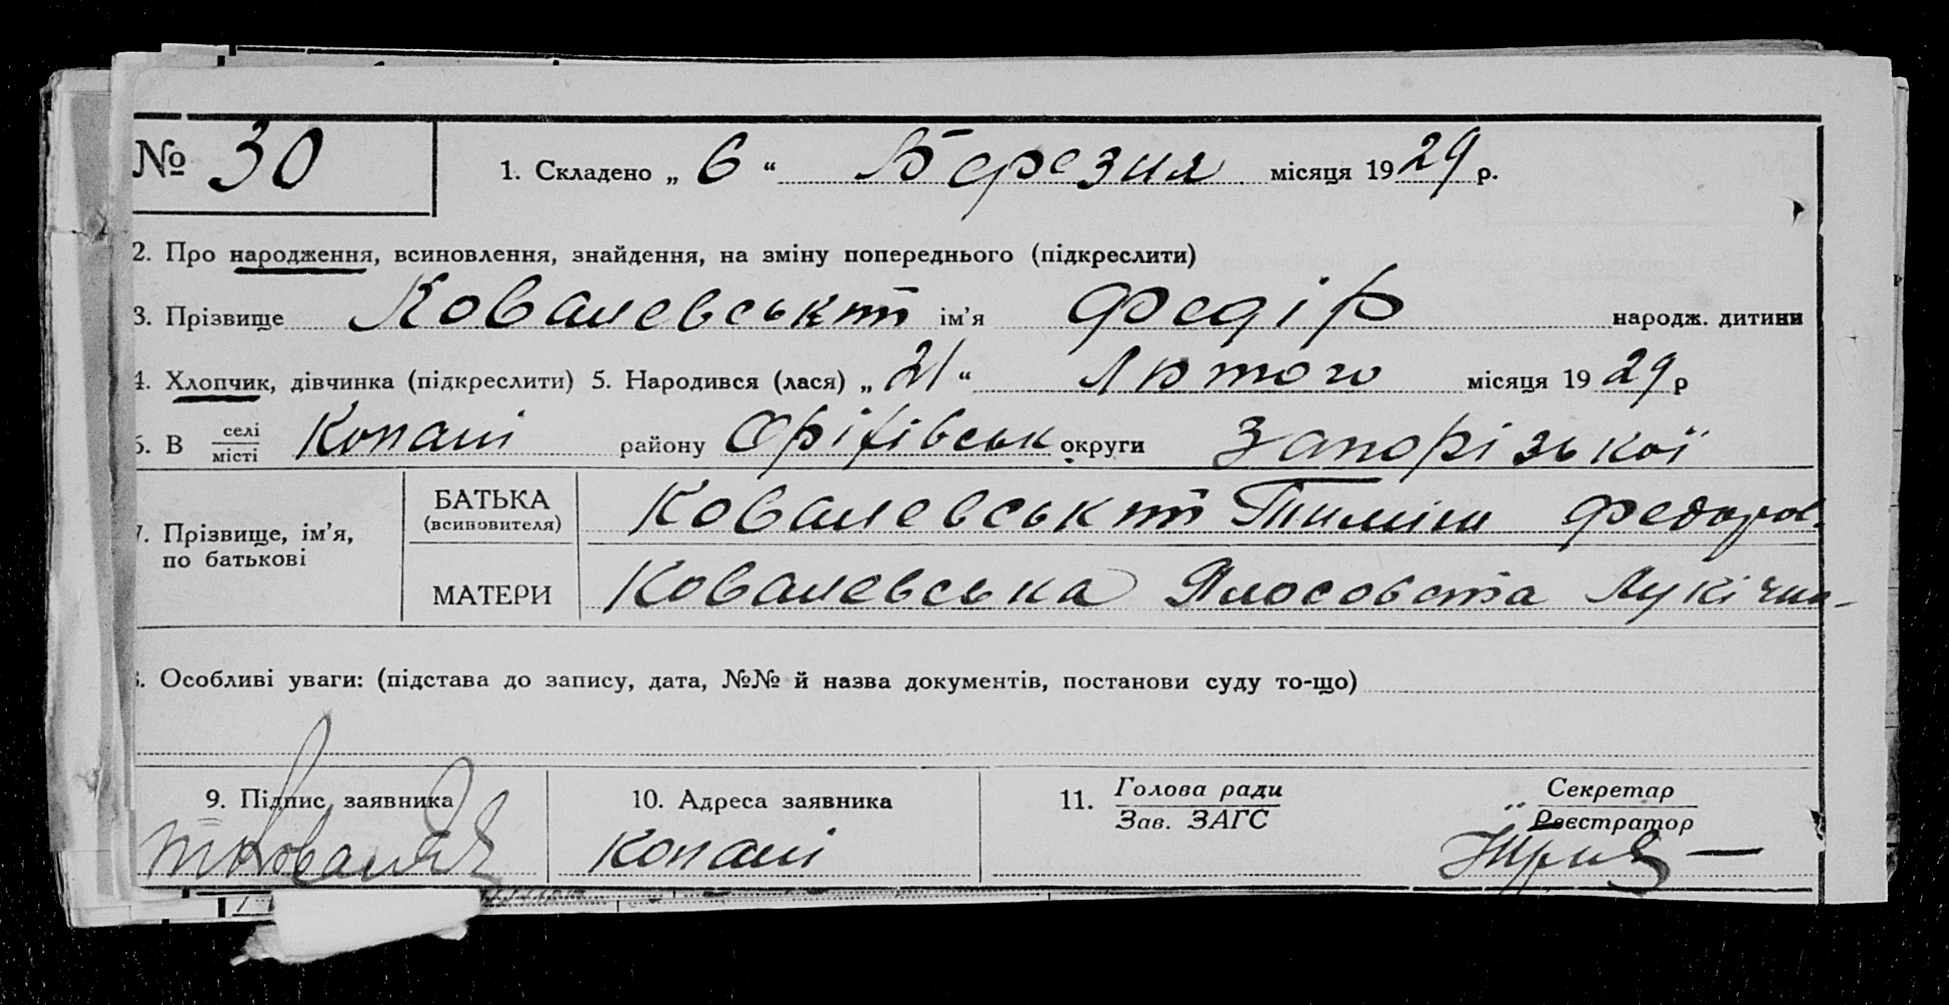 № 30 1. Складено „ 6 “ Березня місяця 1929 р.
2. Про народження, всиновлення, знайдення, на зміну попереднього (підкреслити)
3. Прізвище Ковалевський ім’я Федір народж. дитини
4. Хлопчик, дівчинка (підкреслити) 5. Народився (лася) „ 21 “ Лютого місяця 1929 р
6. В селі місті Копані району Оріхівськ округи Запорізької
7. Прізвище, ім’я, по батькові
БАТЬКА (всиновителя) Ковалевський Тиміш Федоров.
МАТЕРИ Ковалевська Лукічна
8. Особливі уваги: (підстава до запису, дата, №№ й назва документів, постанови суду то-що)
9. Підпис заявника 10. Адреса заявника 11. Голова ради Секретар
Зав. ЗАГС Реєстратор
Копані